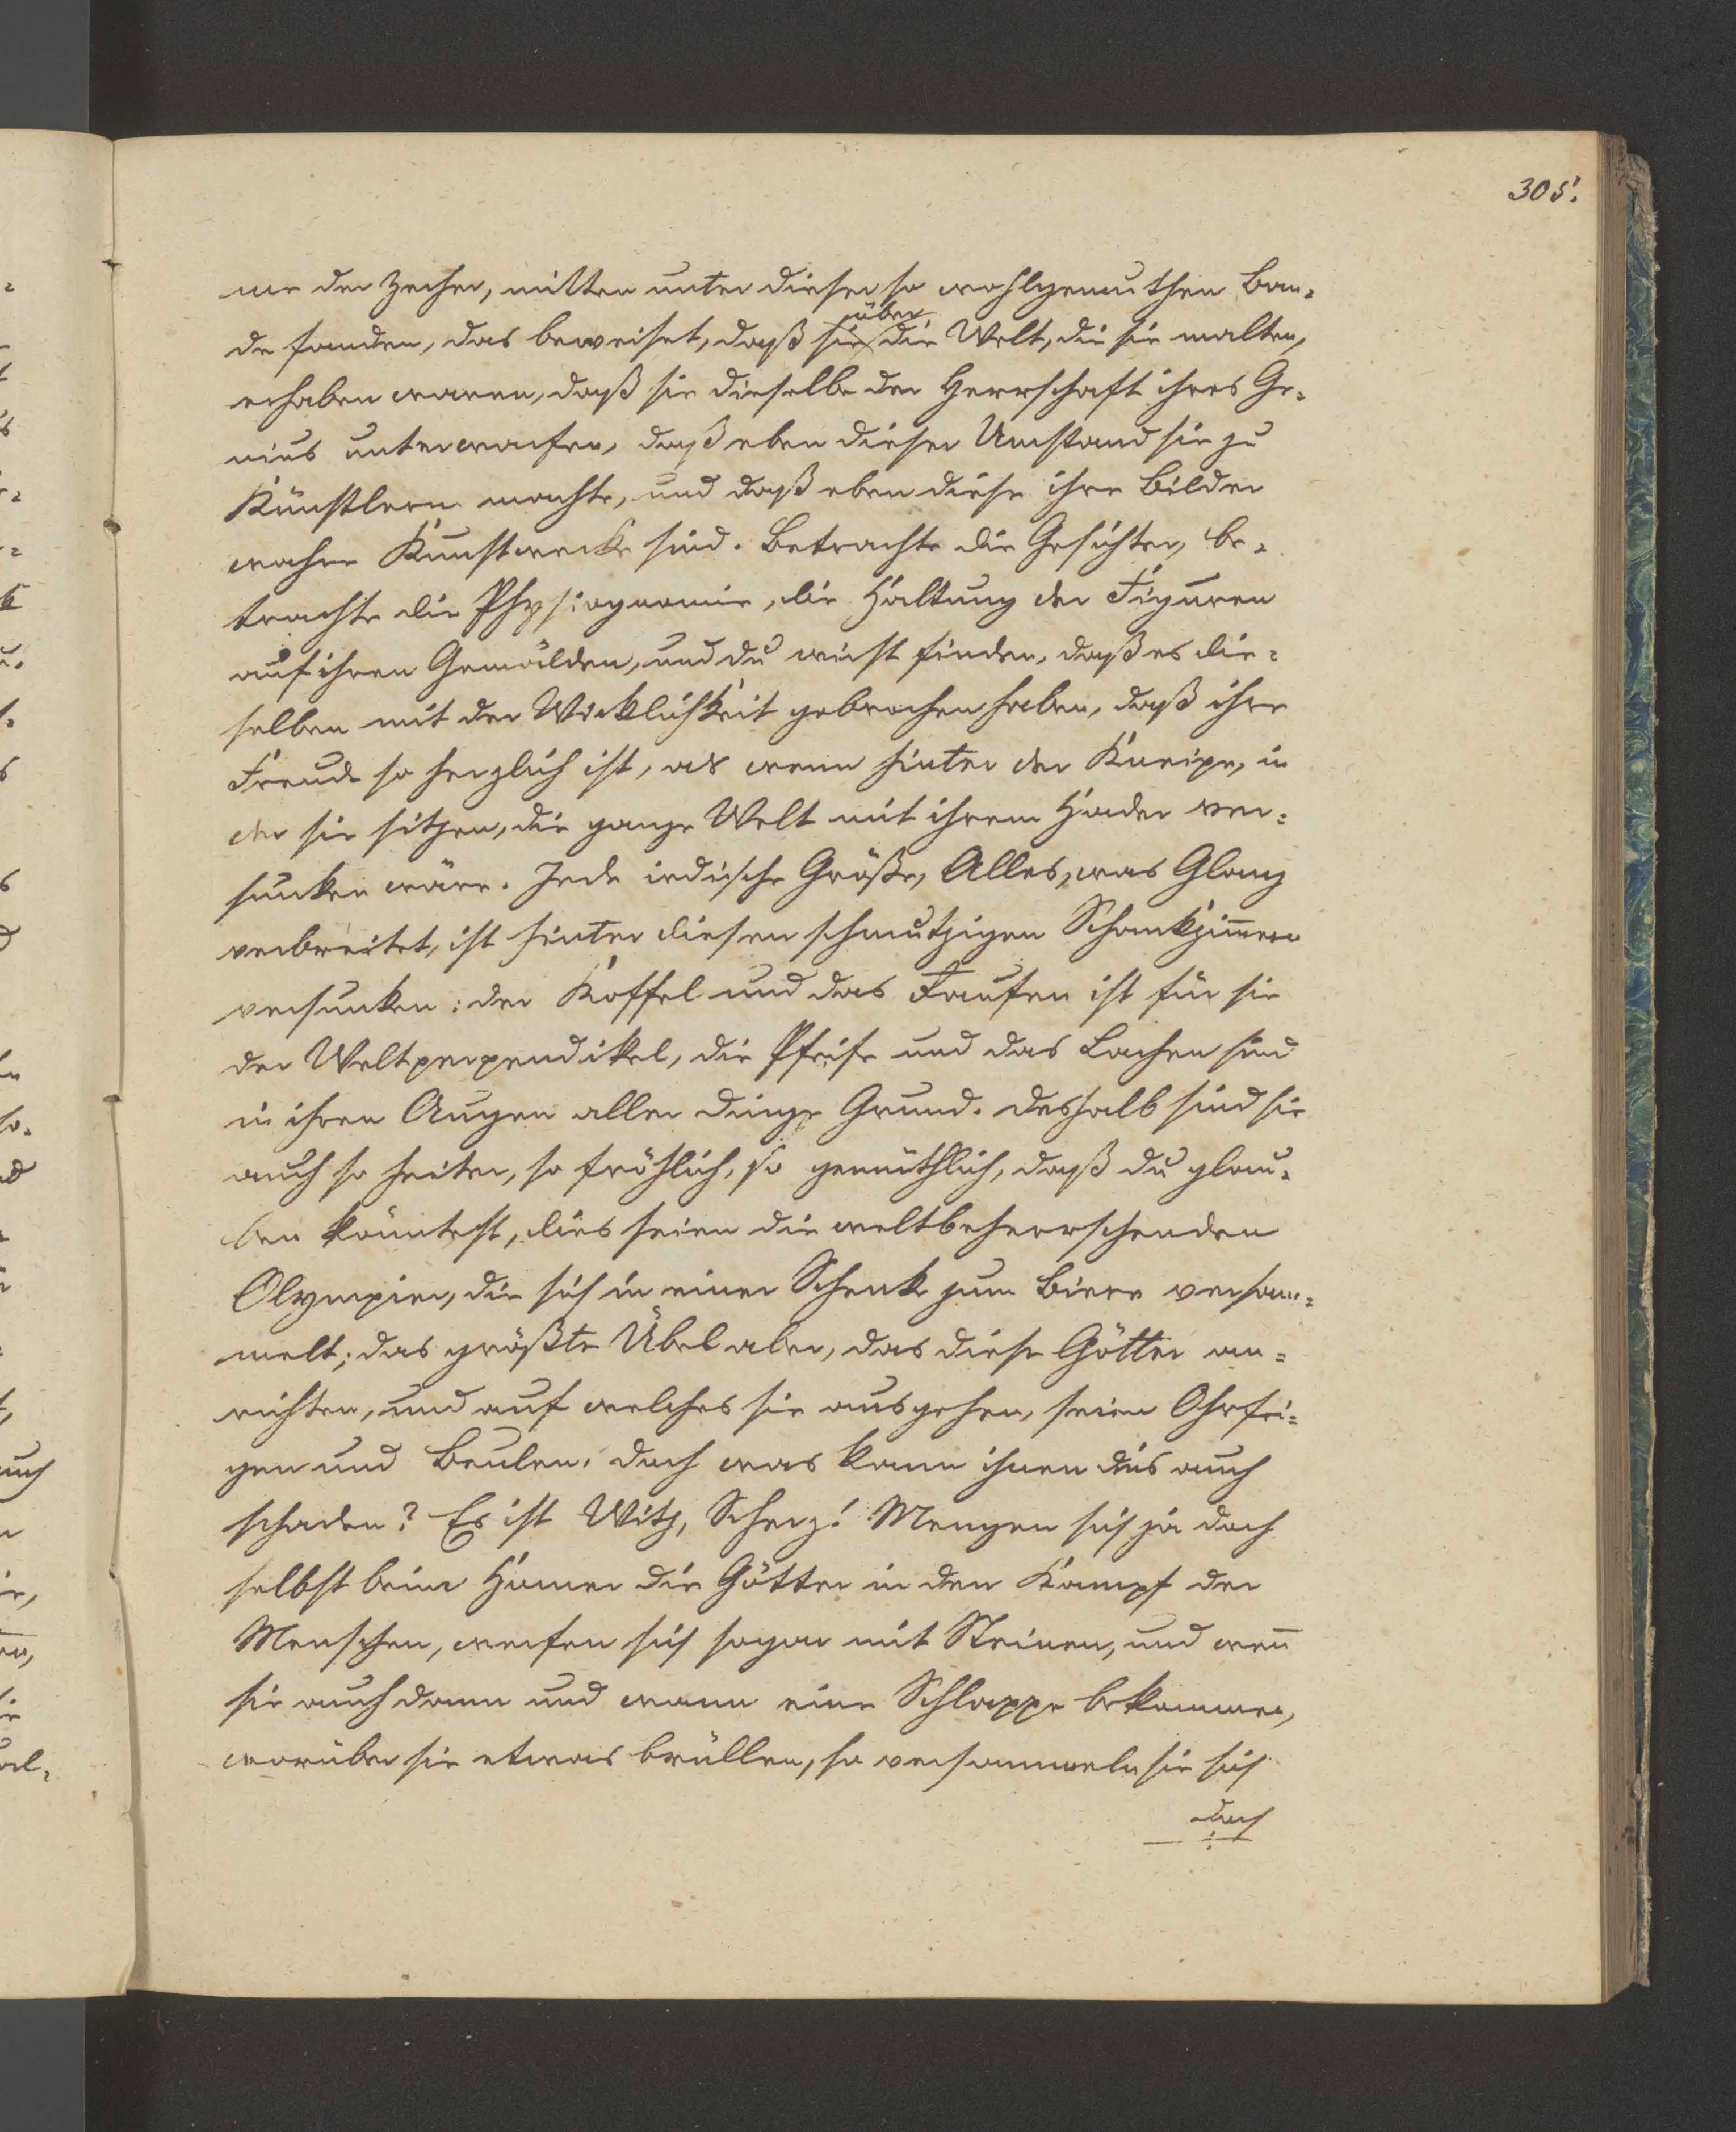 305.
me der Zecher, mitten unter dieser so wohlgemuthen Ban-
de fanden, das beweiset, daß sie über die Welt, die sie malten,
erhaben waren, daß sie dieselbe der Herrschaft ihres Ge-
nius unterwarfen, daß eben dieser Umstand sie zu
Künstlern machte, und daß eben diese ihre Bilder
wahre Kunstwerke sind. Betrachte die Gesichter, be-
trachte die Physiognomie, die Haltung der Figuren
auf ihren Gemälden, und du wirst finden, daß es die-
selben mit der Wirklichkeit gebrochen haben, daß ihre
Freude so herzlich ist, als wenn hinter der Kneipe, in
der sie sitzen, die ganze Welt mit ihrem Hader ver-
sunken wäre. Jede irdische Größe, Alles, was Glanz
verbreitet, ist hinter diesen schmutzigen Schankzimmern
versunken: der Koffel und das Saufen ist für sie
der Weltperpendikel, die Pfeife und das Lachen sind
in ihren Augen aller Dinge Grund. Deshalb sind sie
auch so heiter, so fröhlich, so gemüthlich, daß du glau-
ben könntest, dies seien die weltbeherrschenden
Olympier, die sich in einer Schenke zum Biere versam-
melt; das größte Übel aber, das diese Götter an-
richten, und auf welches sie ausgehen, seien Ohrfei-
gen und Beulen. Doch was kann ihnen dies auch
schaden? Es ist Witz, Scherz! Mengen sich ja doch
selbst beim Homer die Götter in den Kampf der
Menschen, werfen sich sogar mit Steinen, und wenn
sie auch dann und wann eine Schlappe bekommen,
worüber sie etwas brüllen, so versammeln sie sich
doch